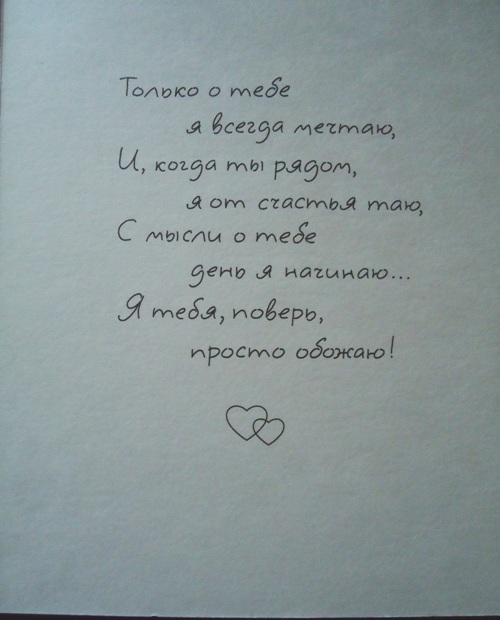 Только о тебе
я всегда мечтаю,
И, когда ты рядом,
я от счастья таю,
С мысли о тебе
день я начинаю...
Я тебя, поверь,
просто обожаю!